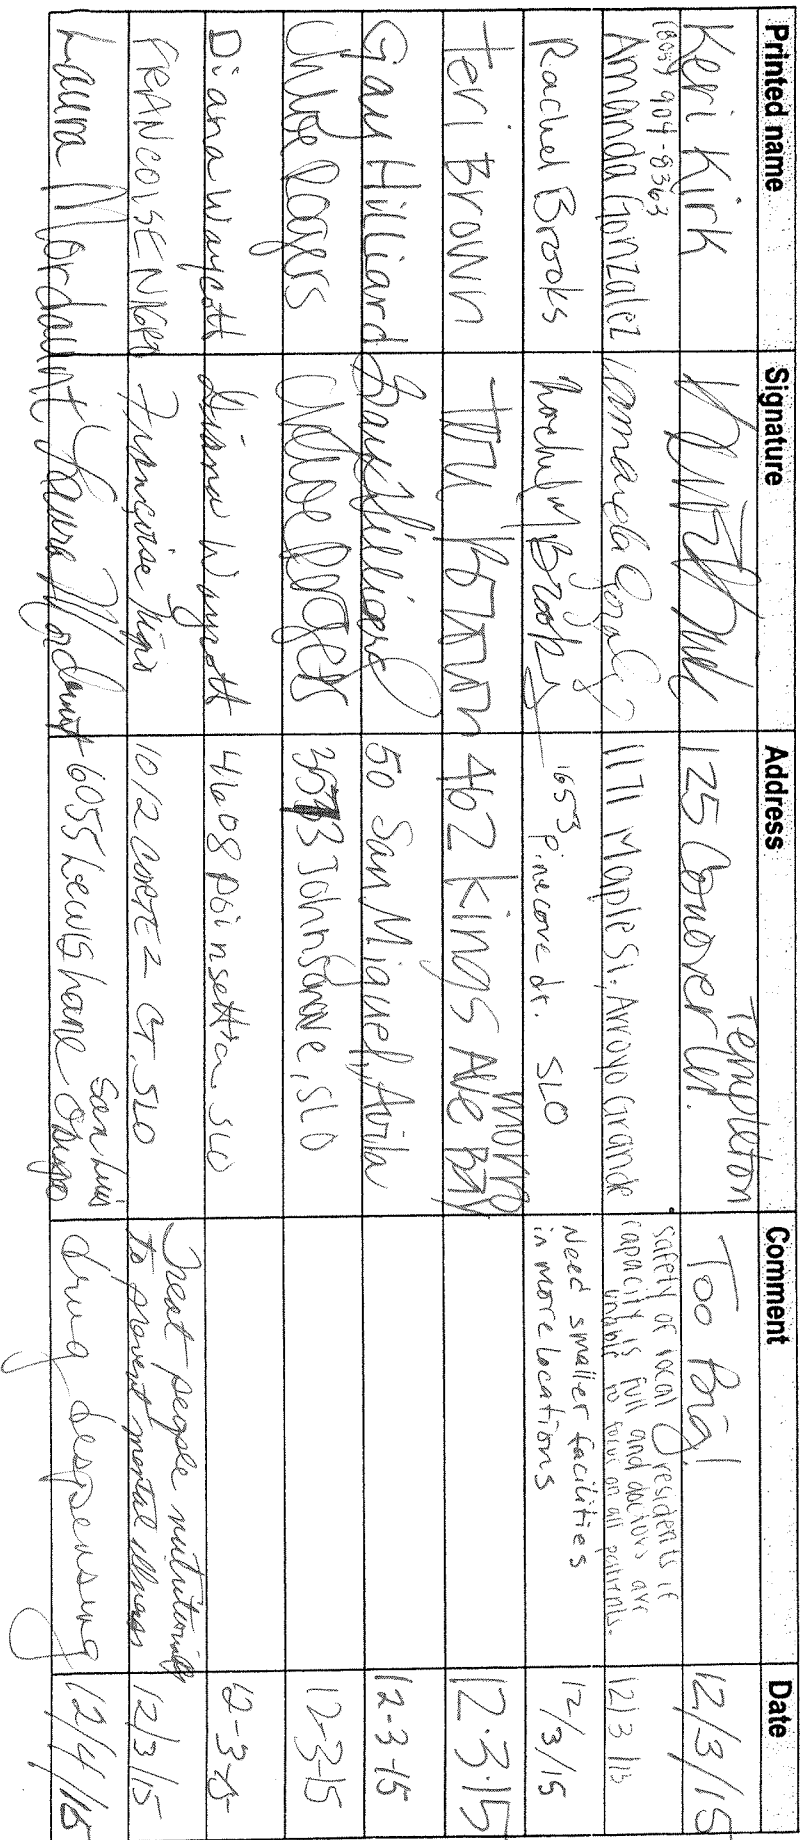 Printed name Signature Address Comment Date
Keri Kirk 125 Conover Ln. Templeton Too Big! 12/3/15
(805) 904-8363
Amanda Gonzalez Amanda 1171 Maple St. Arroyo Grande safety or local residents if
capacity is full and doctors are
unable to focus on all patients. 12/3/15
Rachel Brooks Rachel M Brooks 1653 pinecove dr. SLO Need smaller facilities
in more locations 12/3/15
Teri Brown Teri Brown 462 Kings Ave Morro Bay 12.3.15
Gay Hilliard Gay Hilliard 50 San Miguel, Avila 12-3-15
Chloe Rogers Chloe Rogers Johnson ave, SLO 12-3-15
Diana Waycott Diana Waycott 4608 poinsettia SLO 12-3-15
FRANCOISE Francoise 1012 CORTEZ CT. SLO Treat people nutritionally
to prevent mental illness 12/3/15
Laura Mordaunt Laura Mordaunt 6055 Lewis Lane San Luis Obispo drug despensing 12/4/15